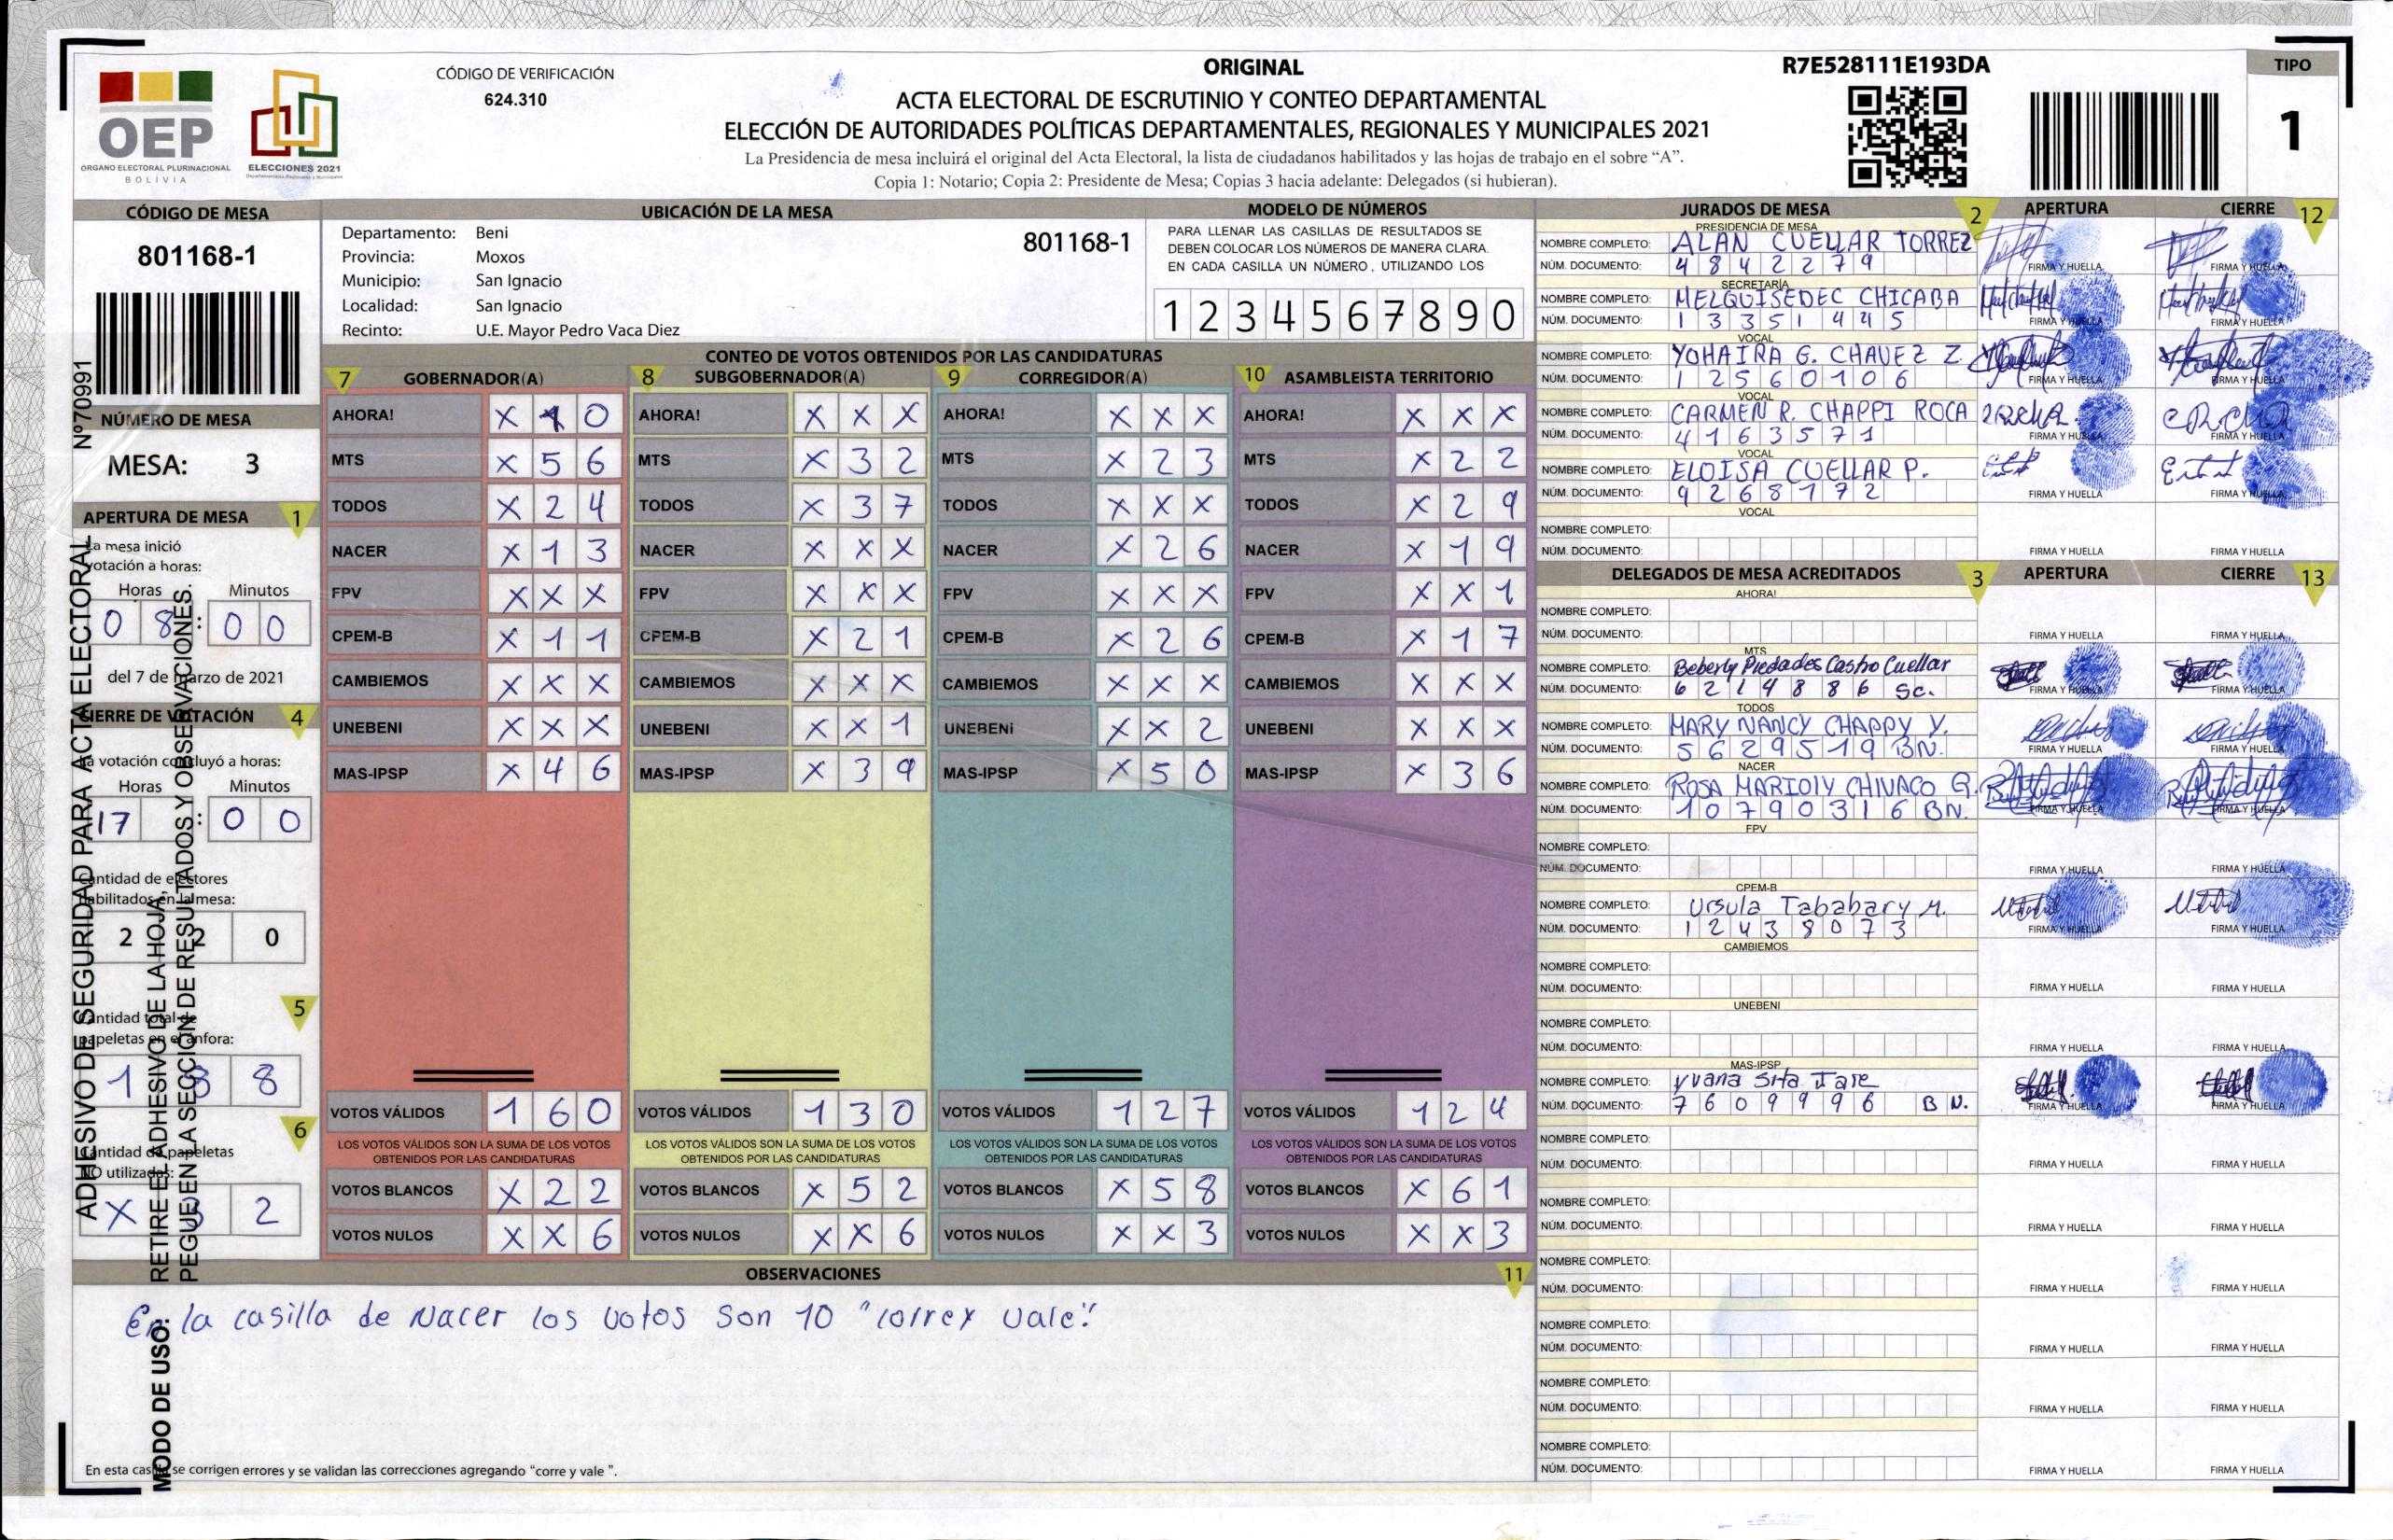 ORIGINAL
R7E528111E193DA
TIPO
1
OEP
ÓRGANO ELECTORAL PLURINACIONAL
BOLIVIA
ELECCIONES 2021
CÓDIGO DE VERIFICACIÓN
624.310
ACTA ELECTORAL DE ESCRUTINIO Y CONTEO DEPARTAMENTAL
ELECCIÓN DE AUTORIDADES POLÍTICAS DEPARTAMENTALES, REGIONALES Y MUNICIPALES 2021
La Presidencia de mesa incluirá el original del Acta Electoral, la lista de ciudadanos habilitados y las hojas de trabajo en el sobre “A”.
Copia 1: Notario; Copia 2: Presidente de Mesa; Copias 3 hacia adelante: Delegados (si hubieran).
CÓDIGO DE MESA
801168-1
NÚMERO DE MESA
MESA: 3
APERTURA DE MESA 1
La mesa inició
votación a horas:
Horas Minutos
0 8 : 0 0
del 7 de marzo de 2021
CIERRE DE VOTACIÓN 4
La votación concluyó a horas:
Horas Minutos
17 : 0 0
Cantidad de electores
habilitados en la mesa:
2 2 0
5
Cantidad total de
papeletas en el ánfora:
1 8 8
6
Cantidad de papeletas
NO utilizadas:
X 3 2
N°70991
ADHESIVO DE SEGURIDAD PARA ACTA ELECTORAL
MODO DE USO: RETIRE EL ADHESIVO DE LA HOJA,
PEGUE EN LA SECCIÓN DE RESULTADOS Y OBSERVACIONES.
UBICACIÓN DE LA MESA
Departamento: Beni
801168-1
Provincia: Moxos
Municipio: San Ignacio
Localidad: San Ignacio
Recinto: U.E. Mayor Pedro Vaca Diez
MODELO DE NÚMEROS
PARA LLENAR LAS CASILLAS DE RESULTADOS SE
DEBEN COLOCAR LOS NÚMEROS DE MANERA CLARA.
EN CADA CASILLA UN NÚMERO, UTILIZANDO LOS
1 2 3 4 5 6 7 8 9 0
CONTEO DE VOTOS OBTENIDOS POR LAS CANDIDATURAS
7 GOBERNADOR(A) 8 SUBGOBERNADOR(A) 9 CORREGIDOR(A) 10 ASAMBLEISTA TERRITORIO
AHORA! X 1 0 AHORA! X X X AHORA! X X X AHORA! X X X
MTS X 5 6 MTS X 3 2 MTS X 2 3 MTS X 2 2
TODOS X 2 4 TODOS X 3 7 TODOS X X X TODOS X 2 9
NACER X 1 3 NACER X X X NACER X 2 6 NACER X 1 9
FPV X X X FPV X X X FPV X X X FPV X X 1
CPEM-B X 1 1 CPEM-B X 2 1 CPEM-B X 2 6 CPEM-B X 1 7
CAMBIEMOS X X X CAMBIEMOS X X X CAMBIEMOS X X X CAMBIEMOS X X X
UNEBENI X X X UNEBENI X X 1 UNEBENI X X 2 UNEBENI X X X
MAS-IPSP X 4 6 MAS-IPSP X 3 9 MAS-IPSP X 5 0 MAS-IPSP X 3 6
VOTOS VÁLIDOS 1 6 0 VOTOS VÁLIDOS 1 3 0 VOTOS VÁLIDOS 1 2 7 VOTOS VÁLIDOS 1 2 4
LOS VOTOS VÁLIDOS SON LA SUMA DE LOS VOTOS LOS VOTOS VÁLIDOS SON LA SUMA DE LOS VOTOS LOS VOTOS VÁLIDOS SON LA SUMA DE LOS VOTOS LOS VOTOS VÁLIDOS SON LA SUMA DE LOS VOTOS
OBTENIDOS POR LAS CANDIDATURAS OBTENIDOS POR LAS CANDIDATURAS OBTENIDOS POR LAS CANDIDATURAS OBTENIDOS POR LAS CANDIDATURAS
VOTOS BLANCOS X 2 2 VOTOS BLANCOS X 5 2 VOTOS BLANCOS X 5 8 VOTOS BLANCOS X 6 1
VOTOS NULOS X X 6 VOTOS NULOS X X 6 VOTOS NULOS X X 3 VOTOS NULOS X X 3
OBSERVACIONES 11
En la casilla de Nacer los votos son 10 "correx vale"
En esta casilla se corrigen errores y se validan las correcciones agregando “corre y vale ”.
JURADOS DE MESA 2 APERTURA CIERRE 12
PRESIDENCIA DE MESA
NOMBRE COMPLETO: ALAN CUELLAR TORREZ
NÚM. DOCUMENTO: 4842279 FIRMA Y HUELLA FIRMA Y HUELLA
SECRETARÍA
NOMBRE COMPLETO: MELQUISEDEC CHICABA
NÚM. DOCUMENTO: 13351445 FIRMA Y HUELLA FIRMA Y HUELLA
VOCAL
NOMBRE COMPLETO: YOHAIRA G. CHAVEZ Z
NÚM. DOCUMENTO: 12560106 FIRMA Y HUELLA FIRMA Y HUELLA
VOCAL
NOMBRE COMPLETO: CARMEN R. CHAPPI ROCA
NÚM. DOCUMENTO: 4163571 FIRMA Y HUELLA FIRMA Y HUELLA
VOCAL
NOMBRE COMPLETO: ELOISA CUELLAR P.
NÚM. DOCUMENTO: 9268172 FIRMA Y HUELLA FIRMA Y HUELLA
VOCAL
NOMBRE COMPLETO:
NÚM. DOCUMENTO: FIRMA Y HUELLA FIRMA Y HUELLA
DELEGADOS DE MESA ACREDITADOS 3 APERTURA CIERRE 13
AHORA!
NOMBRE COMPLETO:
NÚM. DOCUMENTO: FIRMA Y HUELLA FIRMA Y HUELLA
MTS
NOMBRE COMPLETO: Beberly Piedades Castro Cuellar
NÚM. DOCUMENTO: 6214886 SC. FIRMA Y HUELLA FIRMA Y HUELLA
TODOS
NOMBRE COMPLETO: MARY NANCY CHAPPY Y.
NÚM. DOCUMENTO: 5629519 BN. FIRMA Y HUELLA FIRMA Y HUELLA
NACER
NOMBRE COMPLETO: ROSA MARIOLY CHIVACO G.
NÚM. DOCUMENTO: 10790316 BN. FIRMA Y HUELLA FIRMA Y HUELLA
FPV
NOMBRE COMPLETO:
NÚM. DOCUMENTO: FIRMA Y HUELLA FIRMA Y HUELLA
CPEM-B
NOMBRE COMPLETO: Ursula Tababary M.
NÚM. DOCUMENTO: 12438073 FIRMA Y HUELLA FIRMA Y HUELLA
CAMBIEMOS
NOMBRE COMPLETO:
NÚM. DOCUMENTO: FIRMA Y HUELLA FIRMA Y HUELLA
UNEBENI
NOMBRE COMPLETO:
NÚM. DOCUMENTO: FIRMA Y HUELLA FIRMA Y HUELLA
MAS-IPSP
NOMBRE COMPLETO: Yvana Sita Jare
NÚM. DOCUMENTO: 7609996 BN. FIRMA Y HUELLA FIRMA Y HUELLA
NOMBRE COMPLETO:
NÚM. DOCUMENTO: FIRMA Y HUELLA FIRMA Y HUELLA
NOMBRE COMPLETO:
NÚM. DOCUMENTO: FIRMA Y HUELLA FIRMA Y HUELLA
NOMBRE COMPLETO:
NÚM. DOCUMENTO: FIRMA Y HUELLA FIRMA Y HUELLA
NOMBRE COMPLETO:
NÚM. DOCUMENTO: FIRMA Y HUELLA FIRMA Y HUELLA
NOMBRE COMPLETO:
NÚM. DOCUMENTO: FIRMA Y HUELLA FIRMA Y HUELLA
NOMBRE COMPLETO:
NÚM. DOCUMENTO: FIRMA Y HUELLA FIRMA Y HUELLA